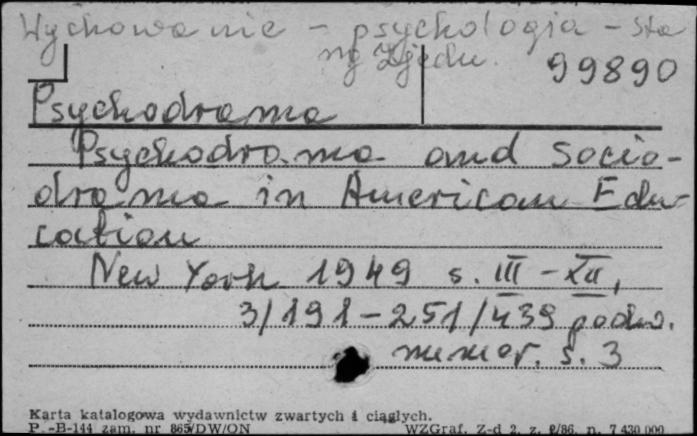 Wychowanie - psychologia - Sta
ny Zjedn.
99890
Psychodrama
Psychodrama and socio-
drama in American Edu-
cation
New York 1949 s. III - XII,
3/191-251/439 podw.
numer. s. 3
Karta katalogowa wydawnictw zwartych i ciągłych.
P.-B-144 zam. nr 865/DW/ON WZGraf. Z-d 2, z. 2/86, n. 7 430 000